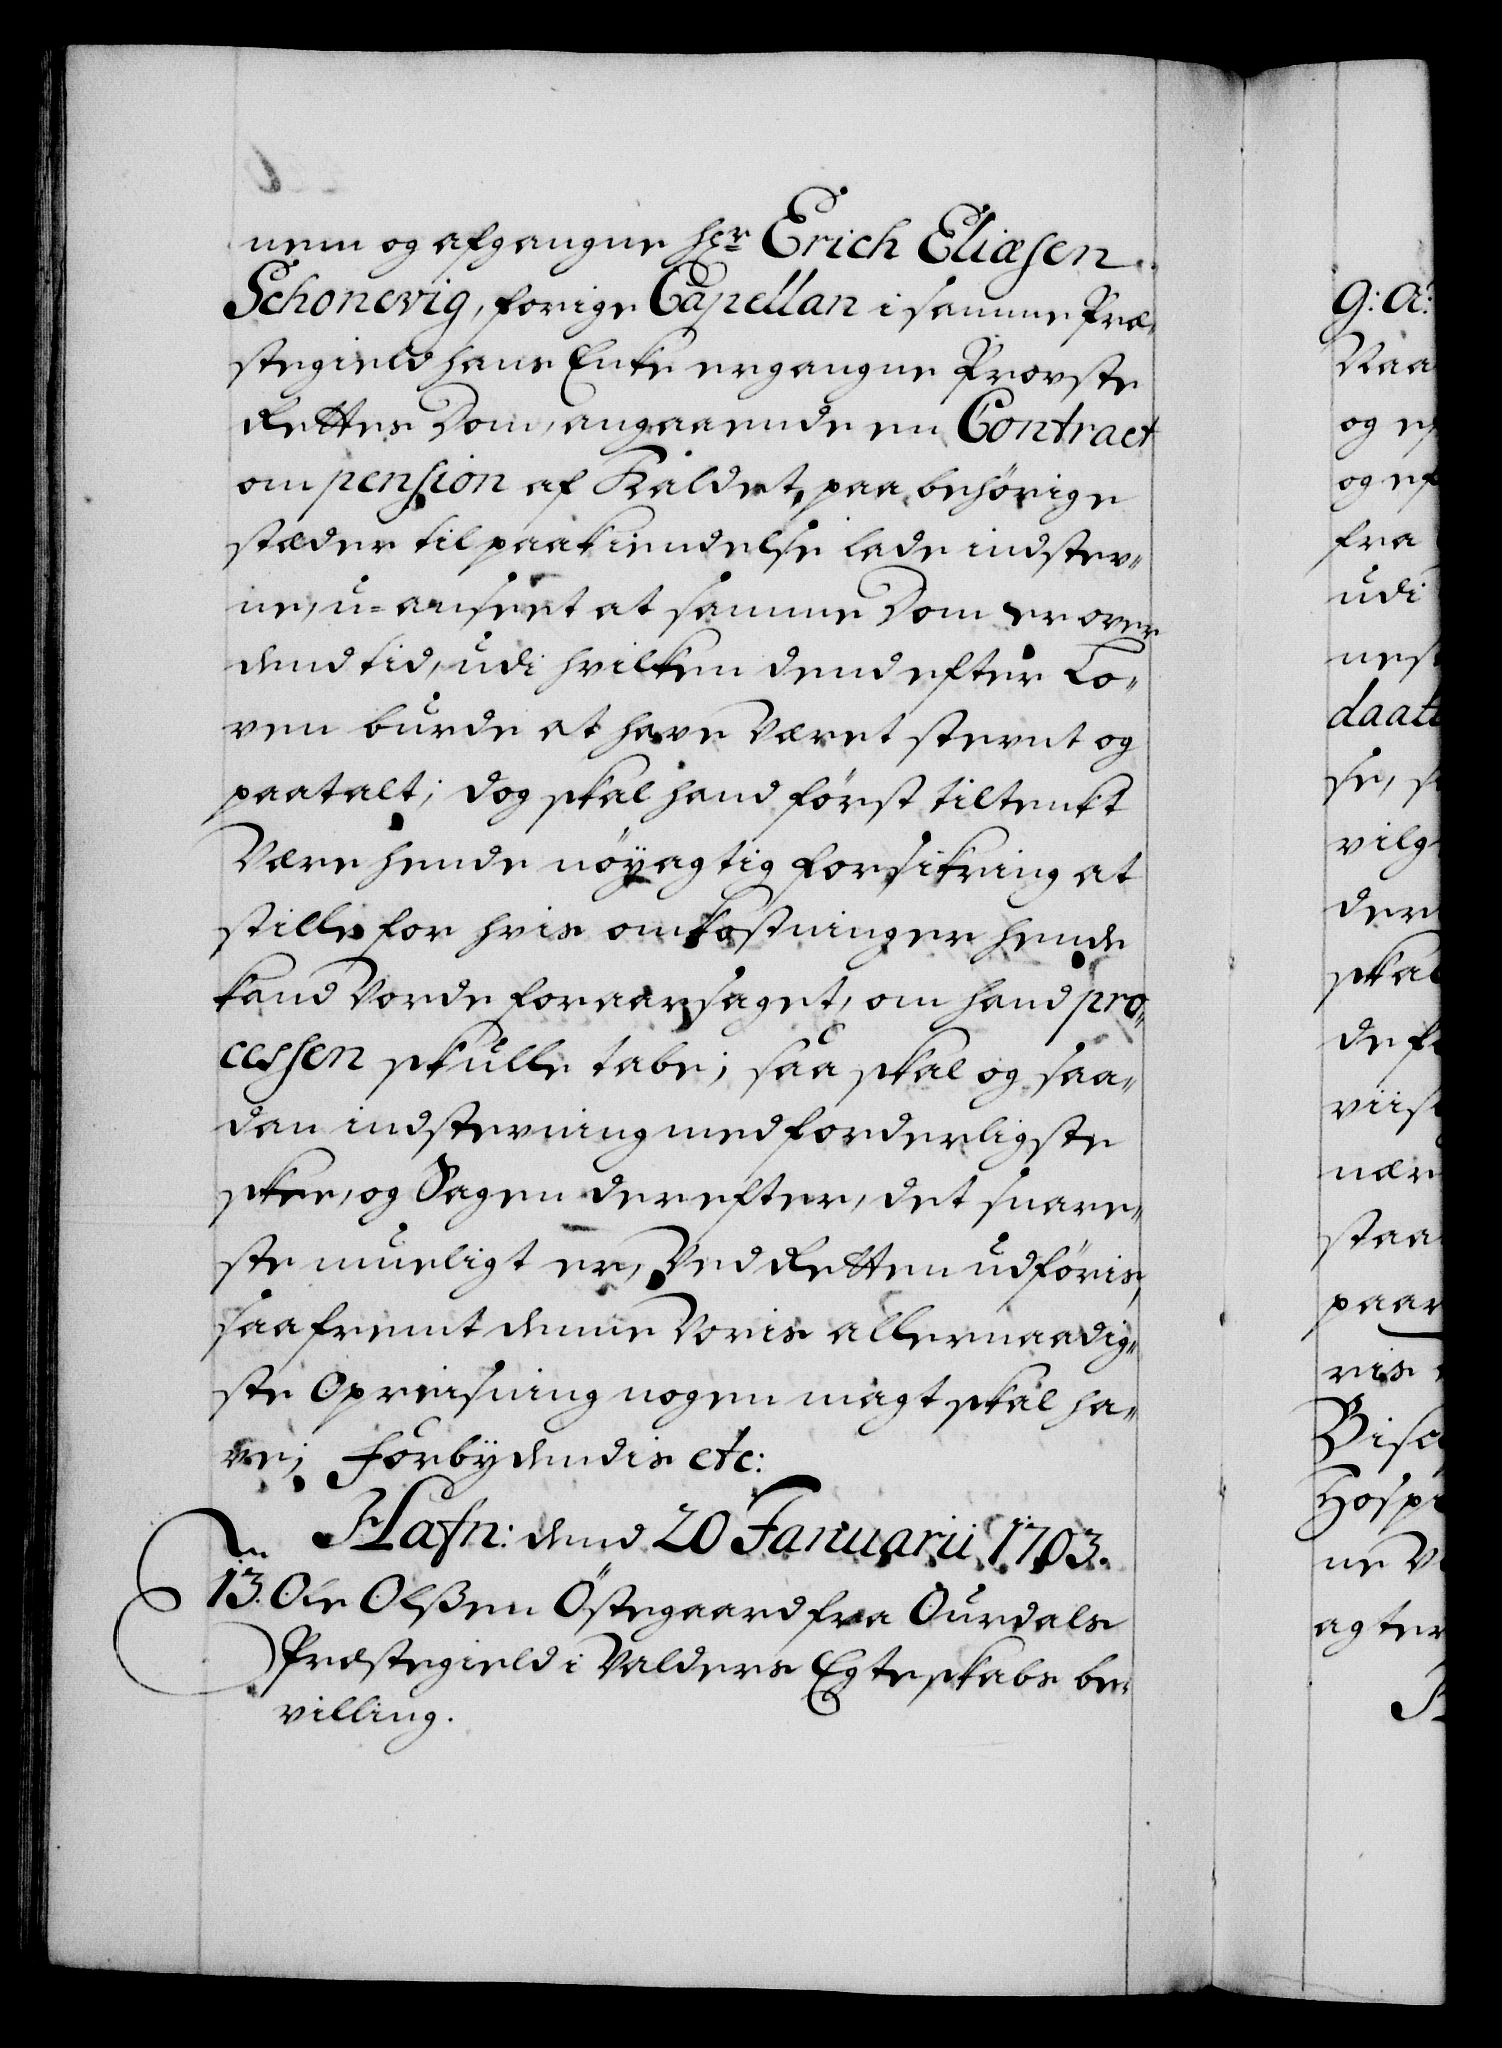 nem og afgangne Hr Erich Eliæsen
Schonevig, forige Capellan i samme Præ-
stegield hans Enke ergangne Provste
Rettes Dom, angaaende en Contract
om pension af Kaldet, paa behörige
stæder til paakiendelse lade indstev-
ne, u-anseet at samme Dom er over
dend tid, udi hvilken dend efter Lo-
ven burde at have været stevnt og
paatalt; dog skal hand först tiltenkt
være hende nöyagtig forsikring at
stille for hvis omkostninger hende
kand vorde foraarsaget, om hand pro-
cessen skulle tabe; saa skal og saa-
dan indstevning med forderligste
skee, og Sagen derefter, det snare-
ste mueligt er, ved Retten udföris,
saafremt denne Voris allernaadig-
ste Opreisning nogen magt skal ha-
ve; Forbydendis etc:
Hafn: dend 20 Januarii 1703.
13. Ole Olßen Östegaard fra Ourdals
Præstegield i Valders Egteskabs be-
villing.